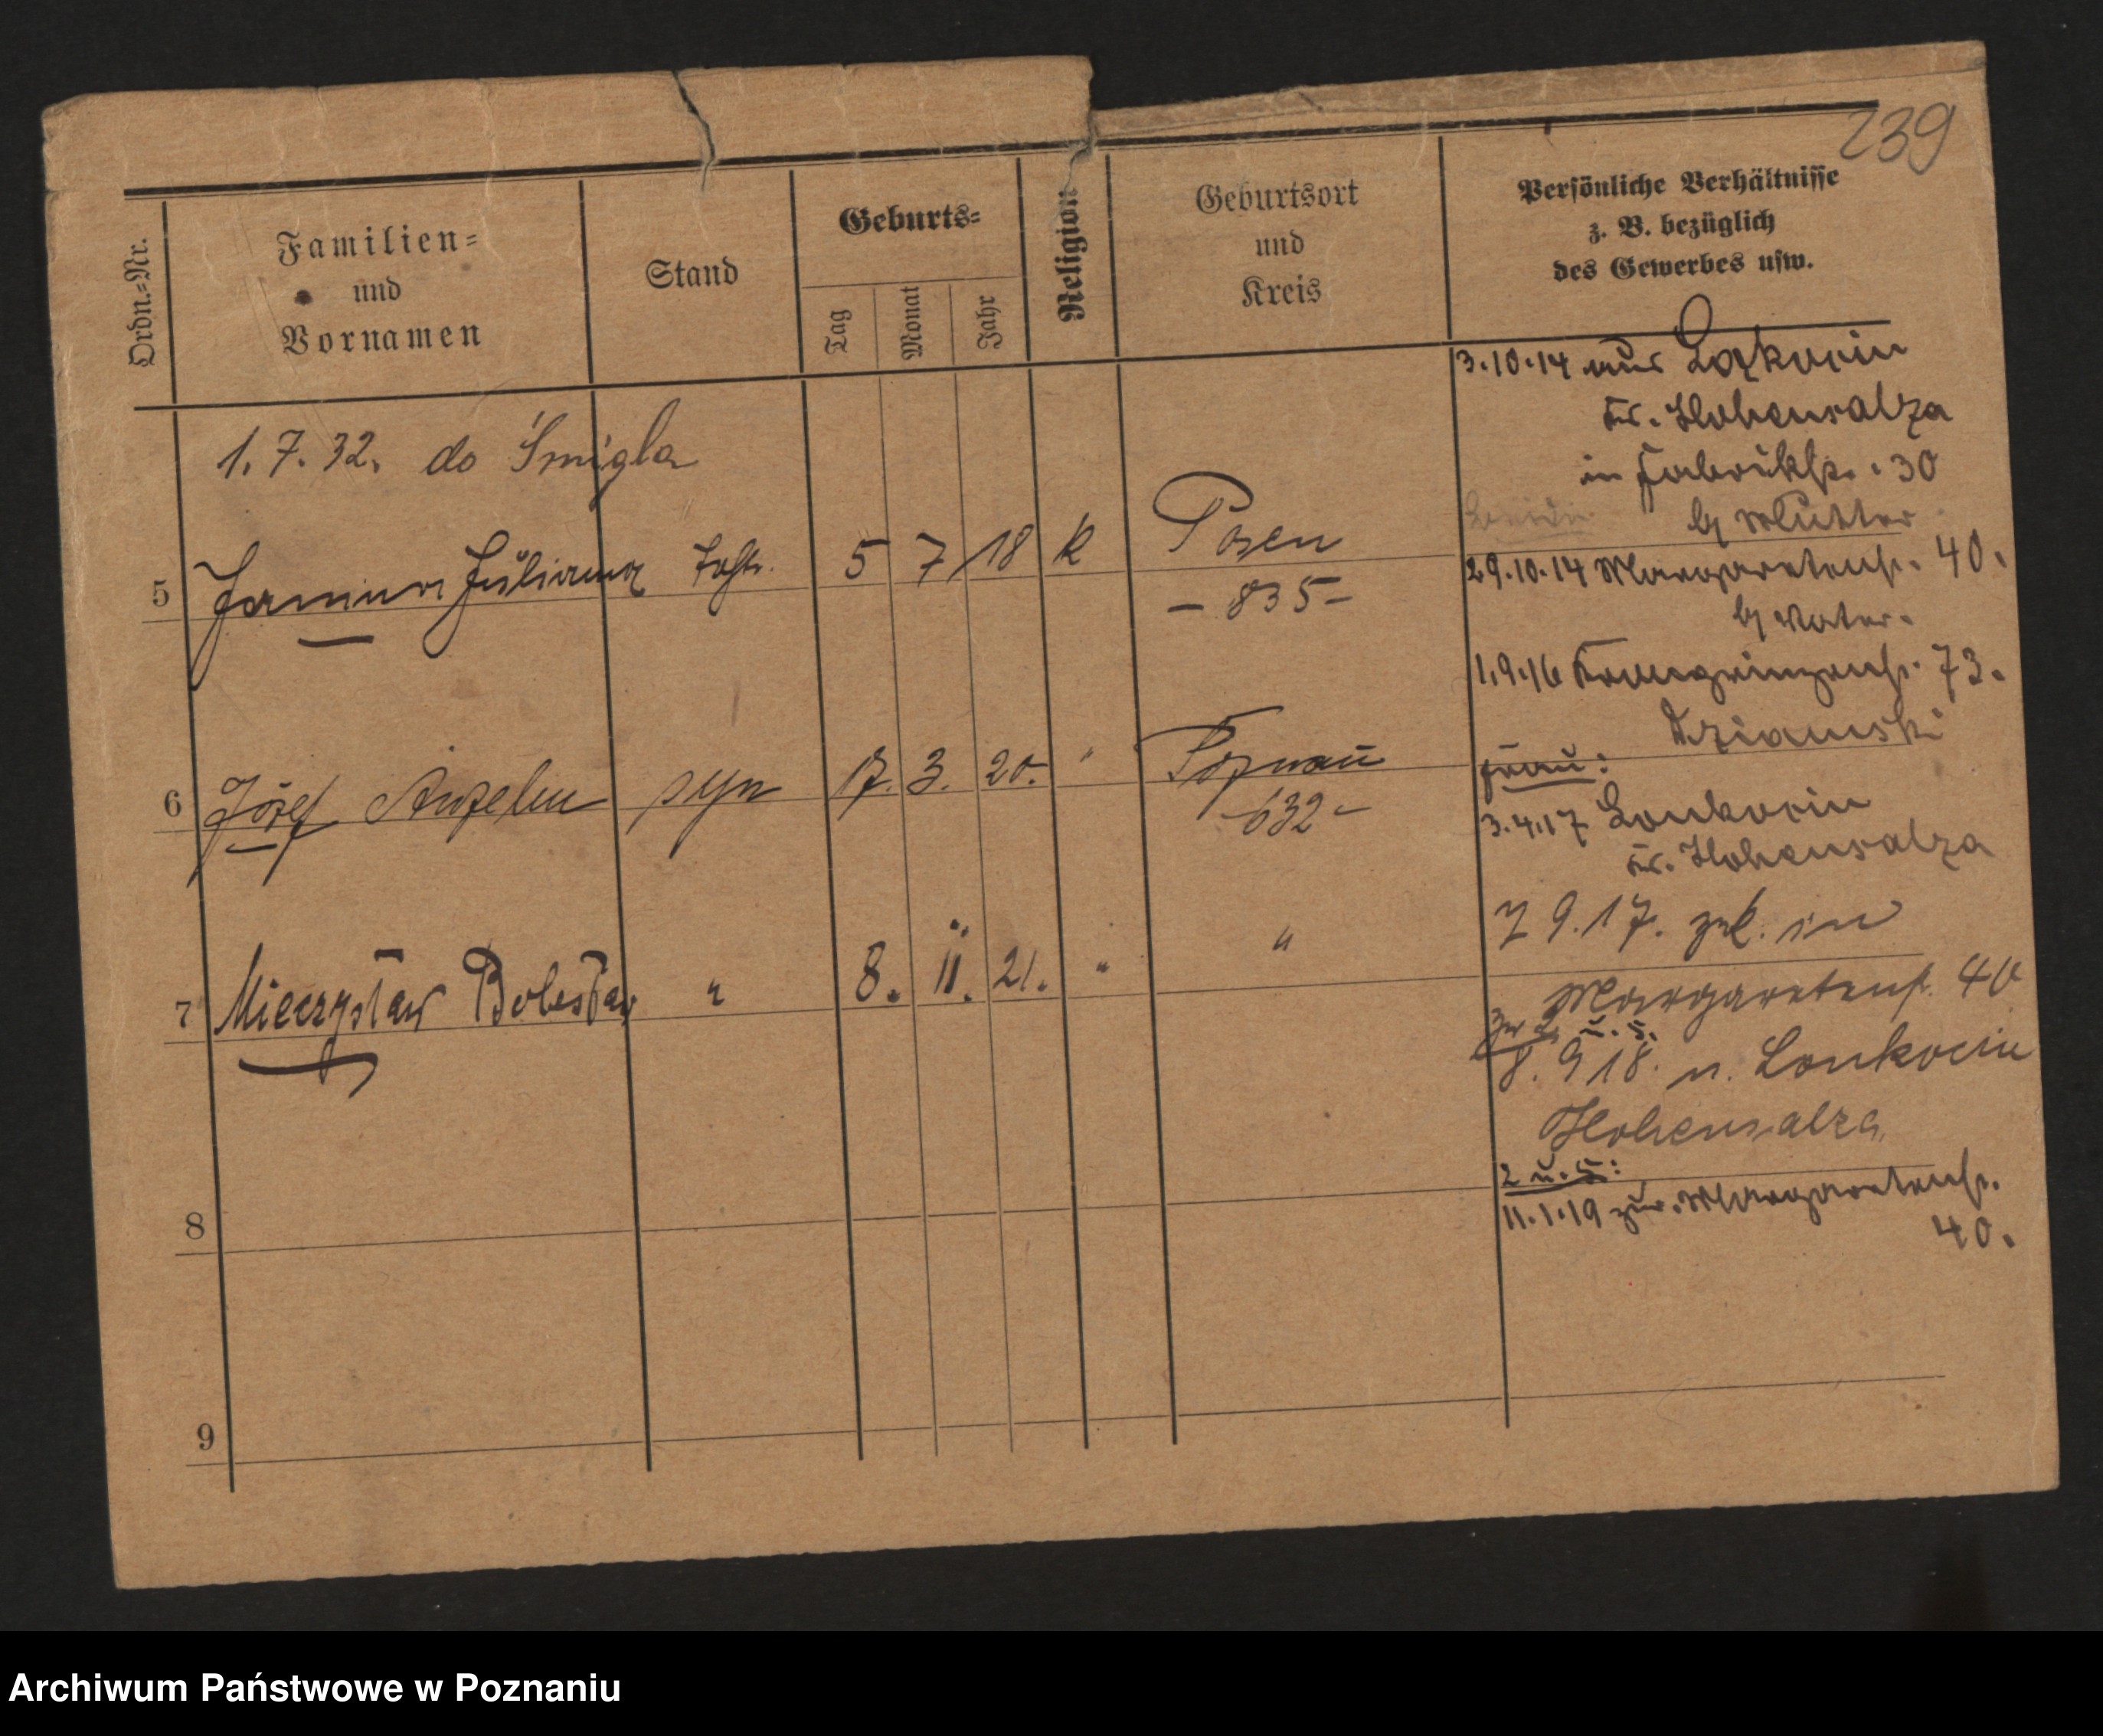 239
Ordn.=Nr.
Familien=
und
Vornamen
Stand
Geburts=
Tag
Monat
Jahr
Religion
Geburtsort
und
Kreis
Persönliche Verhältnisse
z. B. bezüglich
des Gewerbes usw.
1. 7. 32. do Śmigla
5 Janina Juliana Tocht. 5 7 18 k Posen
- 835 -
6 Józef Anzelm syn 17. 3. 20. " Poznań
- 632 -
7 Mieczysław Bolesław " 8. 11. 21. " "
8
9
3.10.14 aus
Kr. Hohensalza
in Fabrikstr. 30
b/ Mutter
29.10.14 Margaretenstr. 40.
b/ Vater.
1.9.16 Kronprinzenstr. 73.
Dzianski
Frau:
3.4.17 Lonkocin
Kr. Hohensalza
7 9. 17. zck. in
Margaretenstr. 40
zu 2 u. 5.
8. 9 18. n. Lonkocin
Hohensalza
2 u. 5:
11.1.19 zur. Margaretenstr.
40.
Archiwum Państwowe w Poznaniu